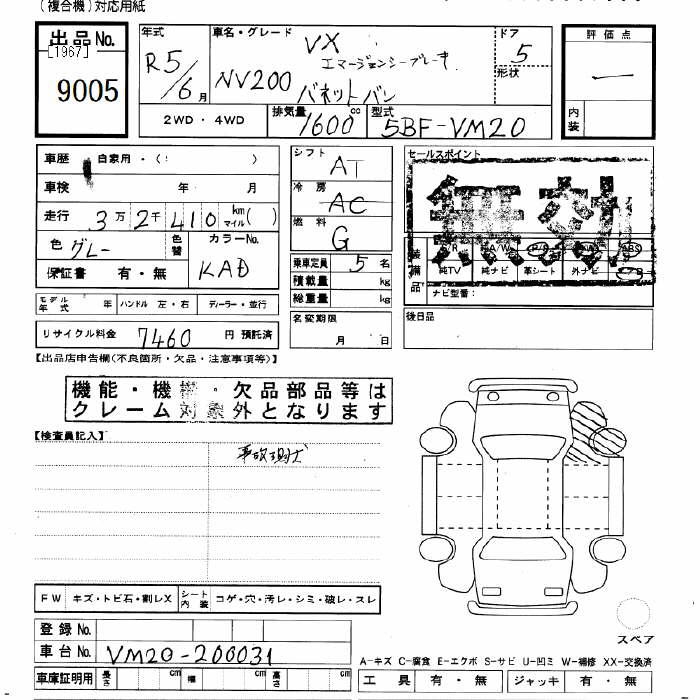 (複合機)対応用紙
出品No.
[1967]
9005
年式
R5/6月
車名・グレード
VX
エマージェンシーブレーキ
NV200
バネットバン
ドア
5
形状
評価点
—
内装
2WD・4WD
排気量
1600
cc
型式
5BF-VM20
車歴
自家用・( )
車検
年 月
走行
3万2千410
km
マイル
( )
色
グレー
色替
カラーNo.
KAD
保証書 有・無
モデル年式
年
ハンドル 左・右
ディーラー・並行
リサイクル料金 7460 円 預託済
シフト
AT
冷房
AC
燃料
G
乗車定員 5 名
積載量 kg
総重量 kg
名変期限
月 日
セールスポイント
無効
装備品
純TV
純ナビ
革シート
外ナビ
ナビ型番:
後日品
【出品店申告欄(不良箇所・欠品・注意事項等)】
機能・機構・欠品部品等は
クレーム対象外となります
【検査員記入】
事故現状
FW
キズ・トビ石・割レX
シート内装
コゲ・穴・汚レ・シミ・破レ・スレ
登録No.
車台No.
VM20-200031
車庫証明用
長さ
cm
幅
cm
高さ
cm
スペア
A-キズ C-腐食 E-エクボ S-サビ U-凹ミ W-補修 XX-交換済
工具 有・無 ジャッキ 有・無